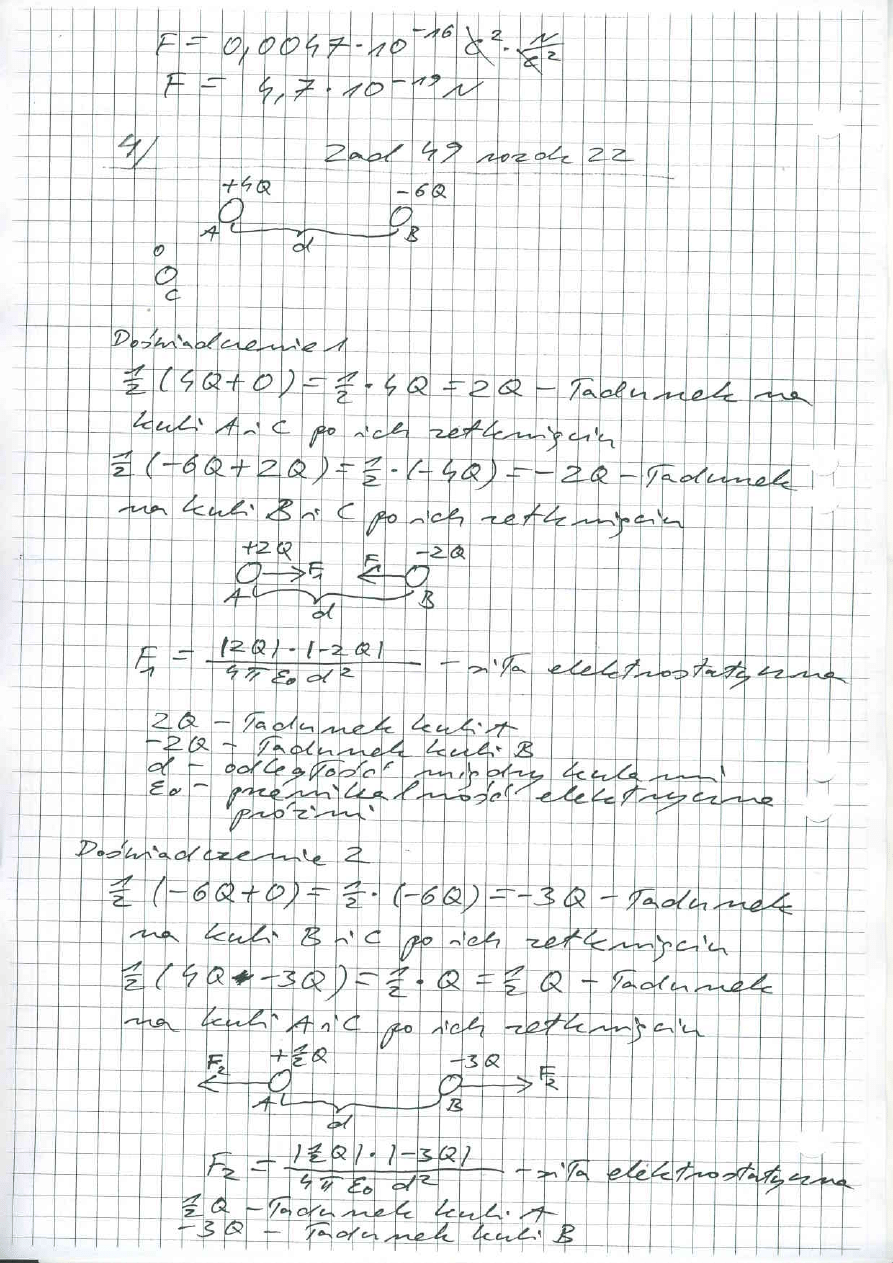 F = 0,0047·10⁻¹⁶ C²·N/C²
F = 4,7·10⁻¹⁹ N
4/ Zad 49 rozdz 22
+4Q -6Q
A d B
0
C
Doświadczenie 1
½(4Q+0) = ½·4Q = 2Q – ładunek na
kuli A i C po ich zetknięciu
½(-6Q+2Q) = ½·(-4Q) = -2Q – ładunek
na kuli B i C po ich zetknięciu
+2Q F₁ F₁ -2Q
A d B
F₁ = |2Q|·|-2Q| / 4πε₀d² – siła elektrostatyczna
2Q – ładunek kuli A
-2Q – ładunek kuli B
d – odległość między kulami
ε₀ – przenikalność elektryczna
próżni
Doświadczenie 2
½(-6Q+0) = ½·(-6Q) = -3Q – ładunek
na kuli B i C po ich zetknięciu
½(4Q-3Q) = ½·Q = ½Q – ładunek
na kuli A i C po ich zetknięciu
F₂ +½Q -3Q F₂
A d B
F₂ = |½Q|·|-3Q| / 4πε₀d² – siła elektrostatyczna
½Q – ładunek kuli A
-3Q – ładunek kuli B